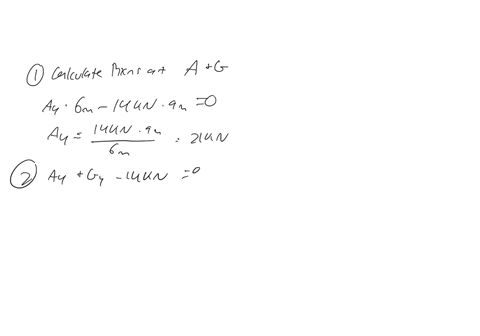 ① Calculate Rxns at A + G
Ay · 6m - 14kN · 9m = 0
Ay = 14kN · 9m / 6m = 21kN
② Ay + Gy - 14kN = 0